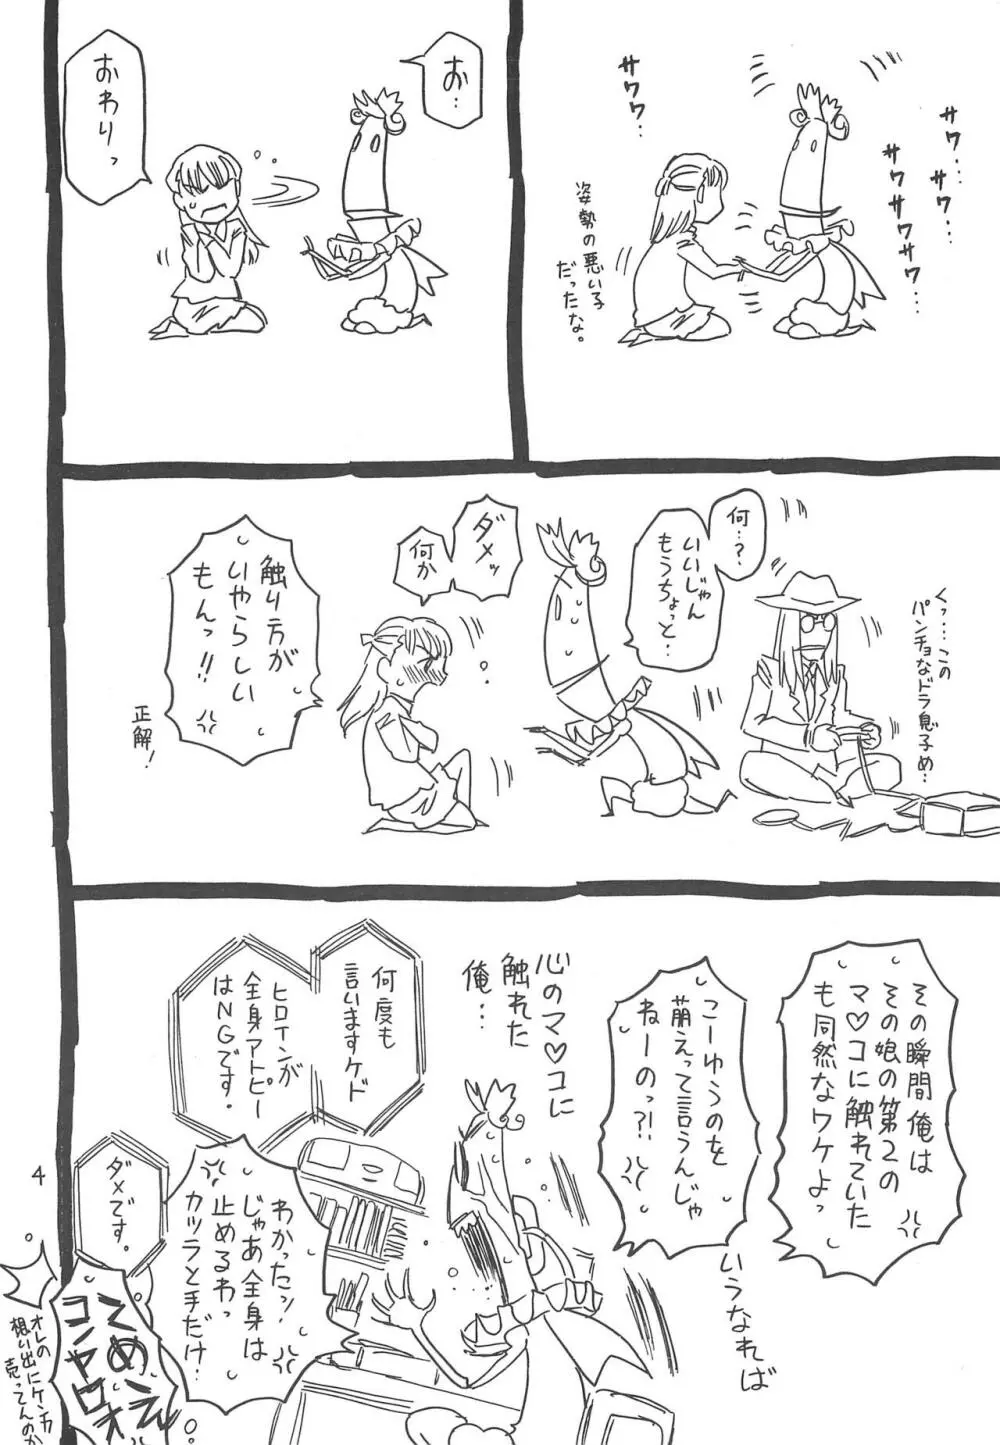 サワ…サワ…
サワサワサワ…
サワワ…
姿勢の悪い子
だったな。
お…
おわりっ
くっ…この
パンチョなドラ息子め…
何…?
いいじゃん
もうちょっと…
ダメッ
何か
触り方が
いやらしい
もんっ!!
正解!
その瞬間俺は
その娘の第2の
マ♡コに触れていた
も同然なワケよっ
いうなれば
こーゆうのを
萌えって言うんじゃ
ねーのっ?!
心のマ♡コに
触れた
俺…
何度も
言いますケド
ヒロインが
全身アトピー
はNGです。
わかったッ!
じゃあ全身は
止めるわっ
カツラと手だけ
ダメです。
てめえ
コンヤロオ
オレの
想い出にケンカ
売ってんのか
4